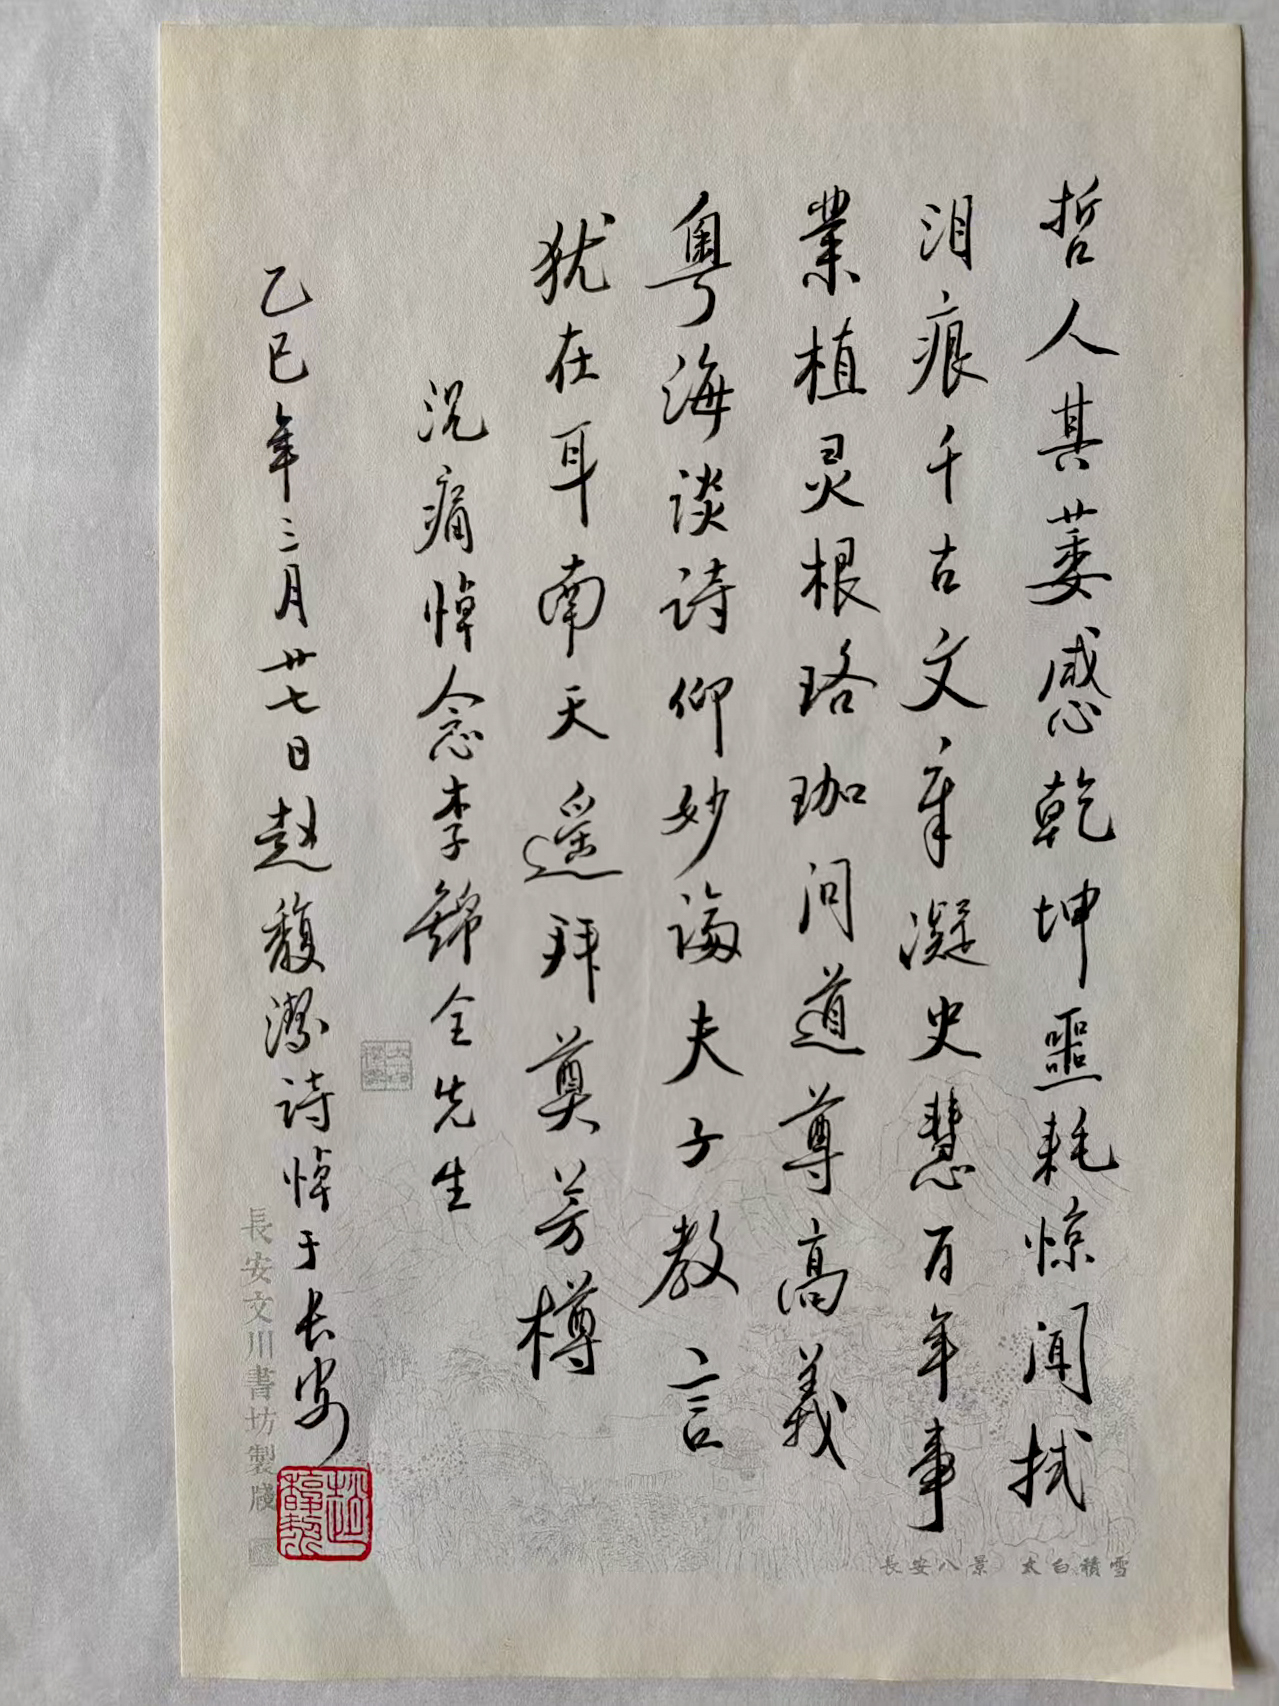 哲人其萎感乾坤噩耗惊闻拭
泪痕千古文章凝史慧百年事
業植灵根珞珈问道尊高義
粤海谈诗仰妙論夫子教言
犹在耳南天遥拜奠芳樽
沉痛悼念李錦全先生
乙巳年三月廿七日赵馥洁诗悼于长安
長安文川書坊製牋
長安八景 太白積雪